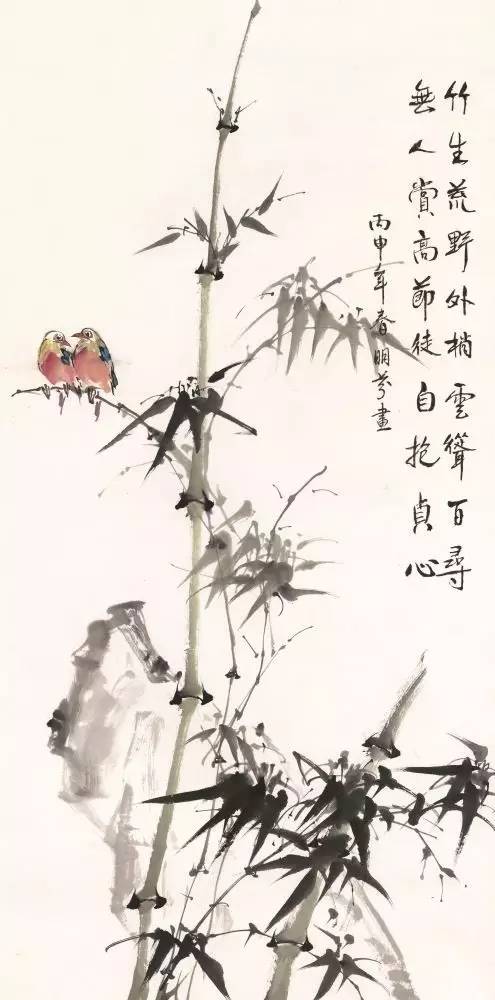 竹生荒野外梢雲聳百尋
無人賞高節徒自抱貞心
丙申年春明芬畫